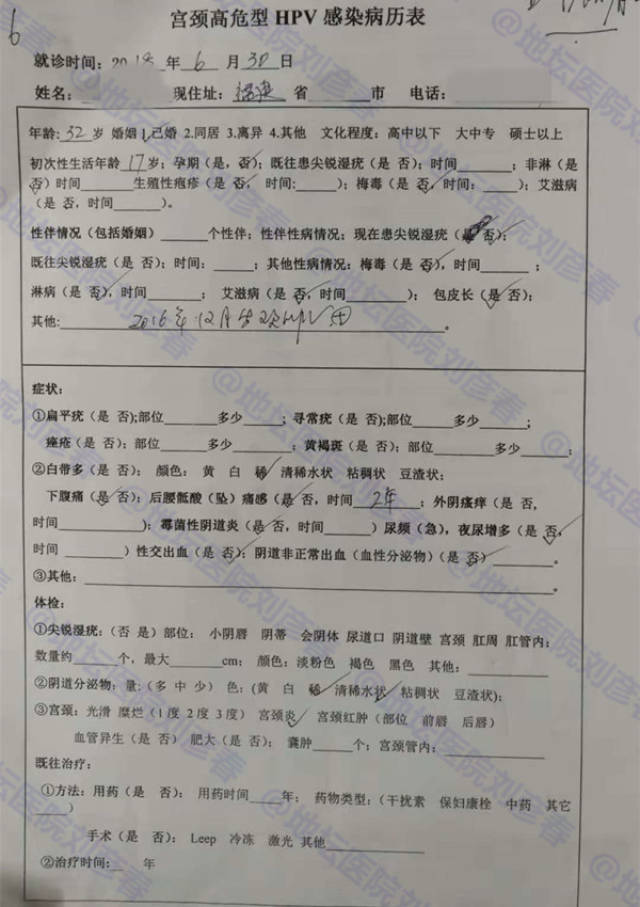 6
宫颈高危型 HPV 感染病历表
就诊时间：2018年 6 月 30 日
姓名： 现住址： 省 市 电话：
年龄：32 岁 婚姻 1.已婚 2.同居 3.离异 4.其他 文化程度：高中以下 大中专 硕士以上
初次性生活年龄 17 岁；孕期（是，否）；既往患尖锐湿疣（是 否）；时间______；非淋（是
否）时间______生殖性疱疹（是 否， 时间：______）；梅毒（是 否，时间：______）；艾滋病
（是 否，时间______）。
性伴情况（包括婚姻）______个性伴；性伴性病情况：现在患尖锐湿疣（是 否）；
既往尖锐湿疣（是 否）；时间：______；其他性病情况：梅毒（是 否），时间______；
淋病（是 否），时间______； 艾滋病（是 否，时间______）； 包皮长（是 否）；
其他： 2016年12月发现HPV
症状：
①扁平疣（是 否）;部位______多少______；寻常疣（是 否）;部位______多少______；
痤疮（是 否）；部位______多少______；黄褐斑（是 否）；部位______多少______；
②白带多（是 否）： 颜色： 黄 白 清稀水状 粘稠状 豆渣状；
下腹痛（是 否）；后腰骶酸（坠）痛感（是 否，时间 2年 ；外阴瘙痒（是 否，
时间______）；霉菌性阴道炎（是 否，时间______）尿频（急），夜尿增多（是 否，
时间 ______）性交出血（是 否）；阴道非正常出血（血性分泌物）（是 否）______。
③其他：______。
体检：
①尖锐湿疣：（否 是）部位： 小阴唇 阴蒂 会阴体 尿道口 阴道壁 宫颈 肛周 肛管内；
数量约______个，最大______cm； 颜色：淡粉色 褐色 黑色 其他：______
②阴道分泌物；量：（多 中 少） 色：（黄 白 清稀水状 粘稠状 豆渣状）；
③宫颈：光滑 糜烂（1 度 2 度 3 度） 宫颈炎 宫颈红肿（部位 前唇 后唇）
血管异生（是 否） 肥大（是 否）； 囊肿______个；宫颈管内：______
既往治疗：
①方法：用药（是 否）： 用药时间____年； 药物类型：（干扰素 保妇康栓 中药 其它
____）
手术（是 否）： Leep 冷冻 激光 其他______
②治疗时间：__ 年
@地坛医院刘彦春